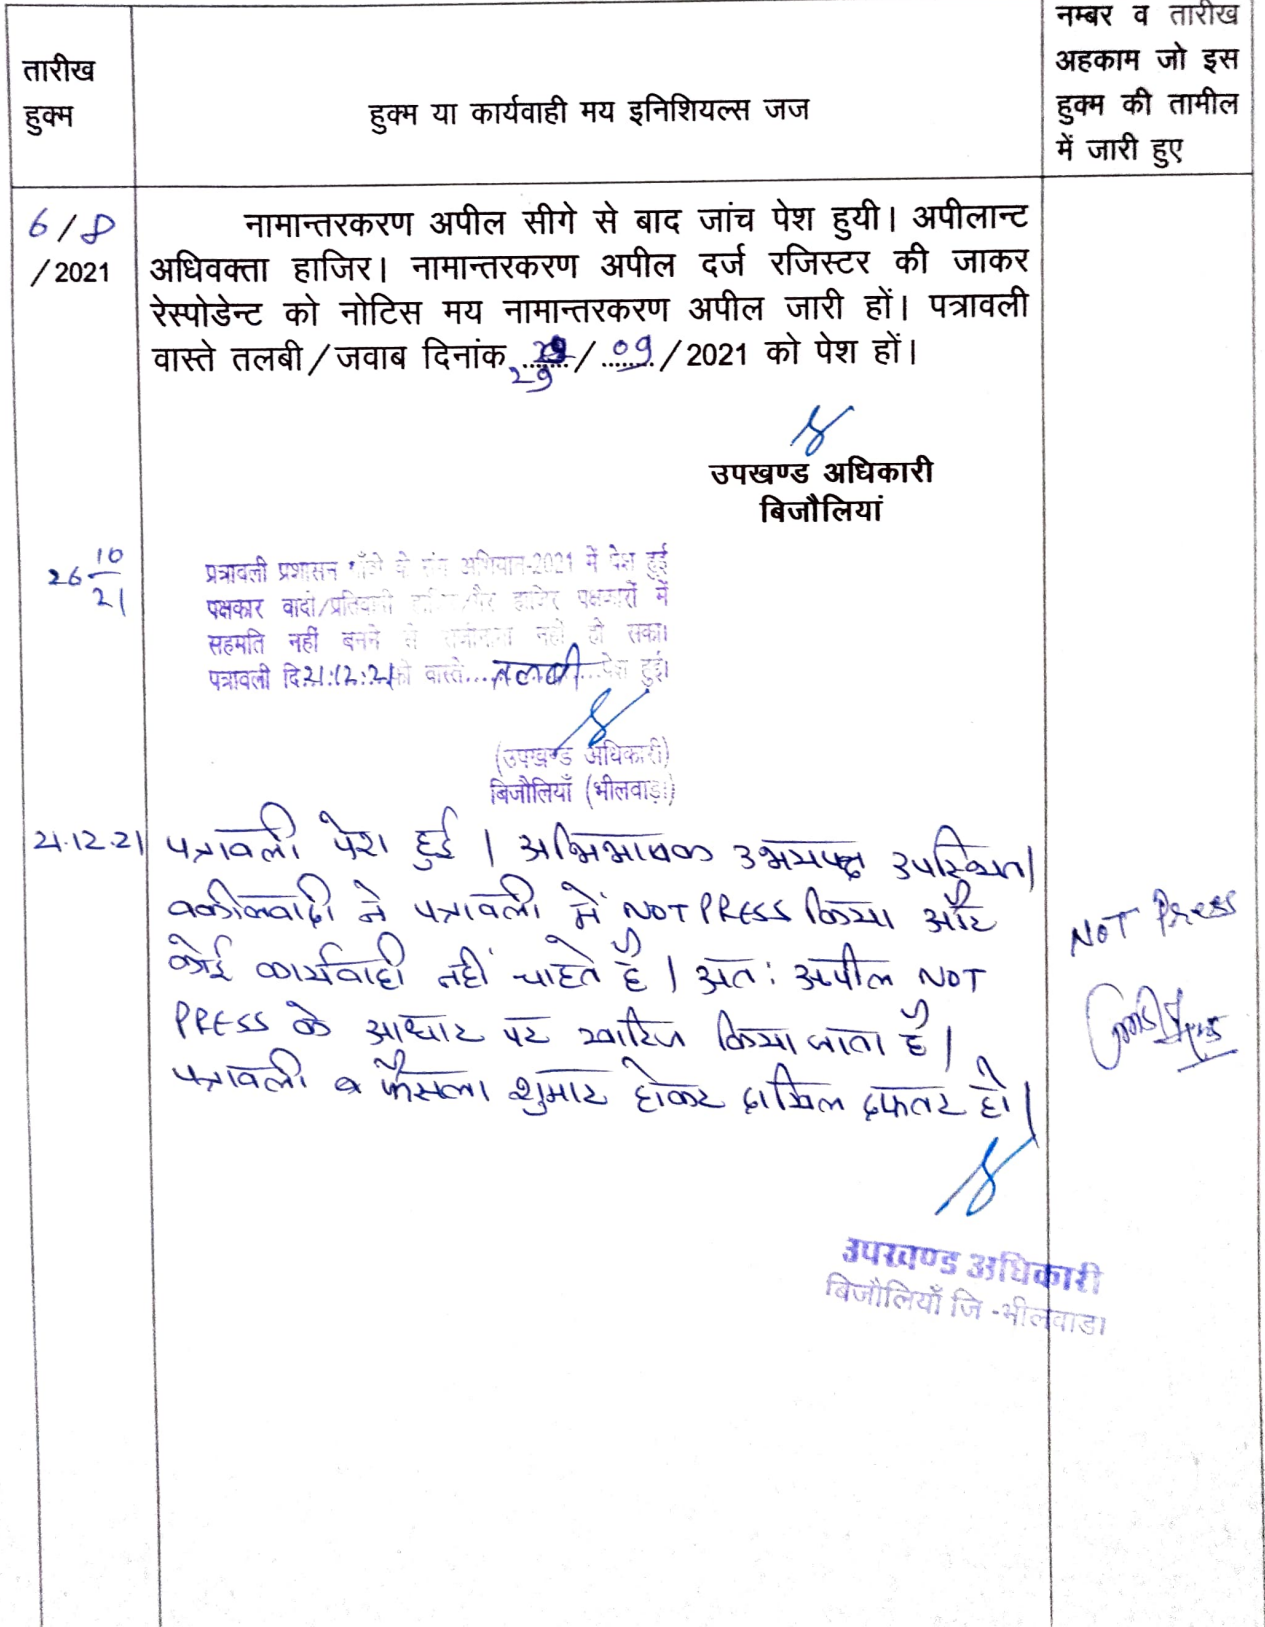 तारीख
हुक्म
हुक्म या कार्यवाही मय इनिशियल्स जज
नम्बर व तारीख
अहकाम जो इस
हुक्म की तामील
में जारी हुए
6/8
/2021
नामान्तरकरण अपील सीगे से बाद जांच पेश हुयी। अपीलान्ट
अधिवक्ता हाजिर। नामान्तरकरण अपील दर्ज रजिस्टर की जाकर
रेस्पोडेन्ट को नोटिस मय नामान्तरकरण अपील जारी हों। पत्रावली
वास्ते तलबी/जवाब दिनांक 29/09/2021 को पेश हों।
उपखण्ड अधिकारी
बिजौलियां
26 10/21
प्रत्रावली प्रशासन गाँवो के संग अभियान-2021 में पेश हुई
पक्षकार वादी/प्रतिवादी हाजिर/गैर हाजिर पक्षकारों में
सहमति नहीं बनने से राजीनामा नही हो सका।
पत्रावली दि.21.12.21को वास्ते...तलबी...पेश हुई।
(उपखण्ड अधिकारी)
बिजौलियाँ (भीलवाड़ा)
21.12.21
पत्रावली पेश हुई। अभिभाषक उभयपक्ष उपस्थित।
वकीलवादी ने पत्रावली में NOT PRESS किया और
कोई कार्यवाही नहीं चाहते है। अतः अपील NOT
PRESS के आधार पर खारिज किया जाता है।
पत्रावली व फैसला शुमार होकर दाखिल दफतर हो।
NOT Press
उपखण्ड अधिकारी
बिजौलियाँ जि -भीलवाडा